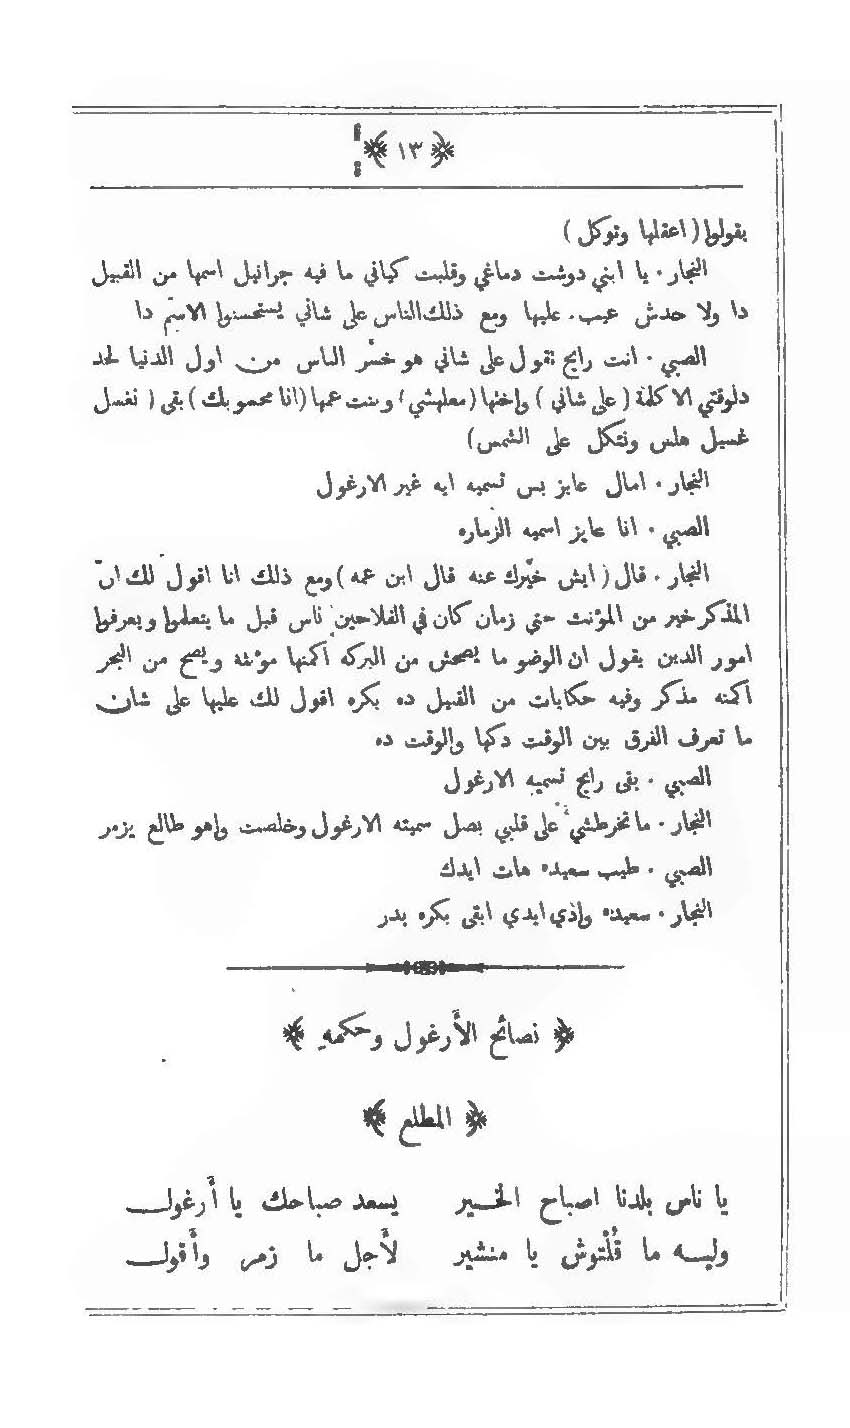 ﴿ ١٣ ﴾
يقولوا ( اعقلها وتوكل )
النجار . يا ابني دوشت دماغي وقلبت كياني ما فيه جرانيل اسمها من القبيل
دا ولا حدش عيب . عليها ومع ذلك الناس على شاني يستحسنوا الاسم دا
الصبي . انت رايح تقول على شاني هو خسّر الناس من اول الدنيا لحد
دلوقتي الا كلمة ( على شاني ) واختها ( معلهشي ) وبنت عمها ( انا محسوبك ) بقى ( نغسل
غسيل هلس ونتكل على الشمس )
النجار . امال عايز بس تسميه ايه غير الارغول
الصبي . انا عايز اسميه الزماره
النجار . قال ( ايش خبّرك عنه قال ابن عمه ) ومع ذلك انا اقول لك انّ
المذكر خير من المؤنث حتي زمان كان في الفلاحين ناس قبل ما يتعلموا ويعرفوا
امور الدين يقول ان الوضو ما يصحش من البركه أكمنها مؤنثه ويصح من البحر
أكمنه مذكر وفيه حكايات من القبيل ده بكره اقول لك عليها على شان
ما تعرف الفرق بين الوقت دكها والوقت ده
الصبي . بقى رايح تسميه الارغول
النجار . ما تخرطشي على قلبي بصل سميته الارغول وخلصت واهو طالع يزمر
الصبي . طيب سعيده هات ايدك
النجار . سعيده وادي ايدي ابقى بكره بدر
﴿ نصائح الأرغول وحكمه ﴾
﴿ المطلع ﴾
يا ناس بلدنا اصباح الخـير يسعد صباحك يا أرغول
وليـه ما قُلْتوش يا منشير لأجل ما زمر وأقول